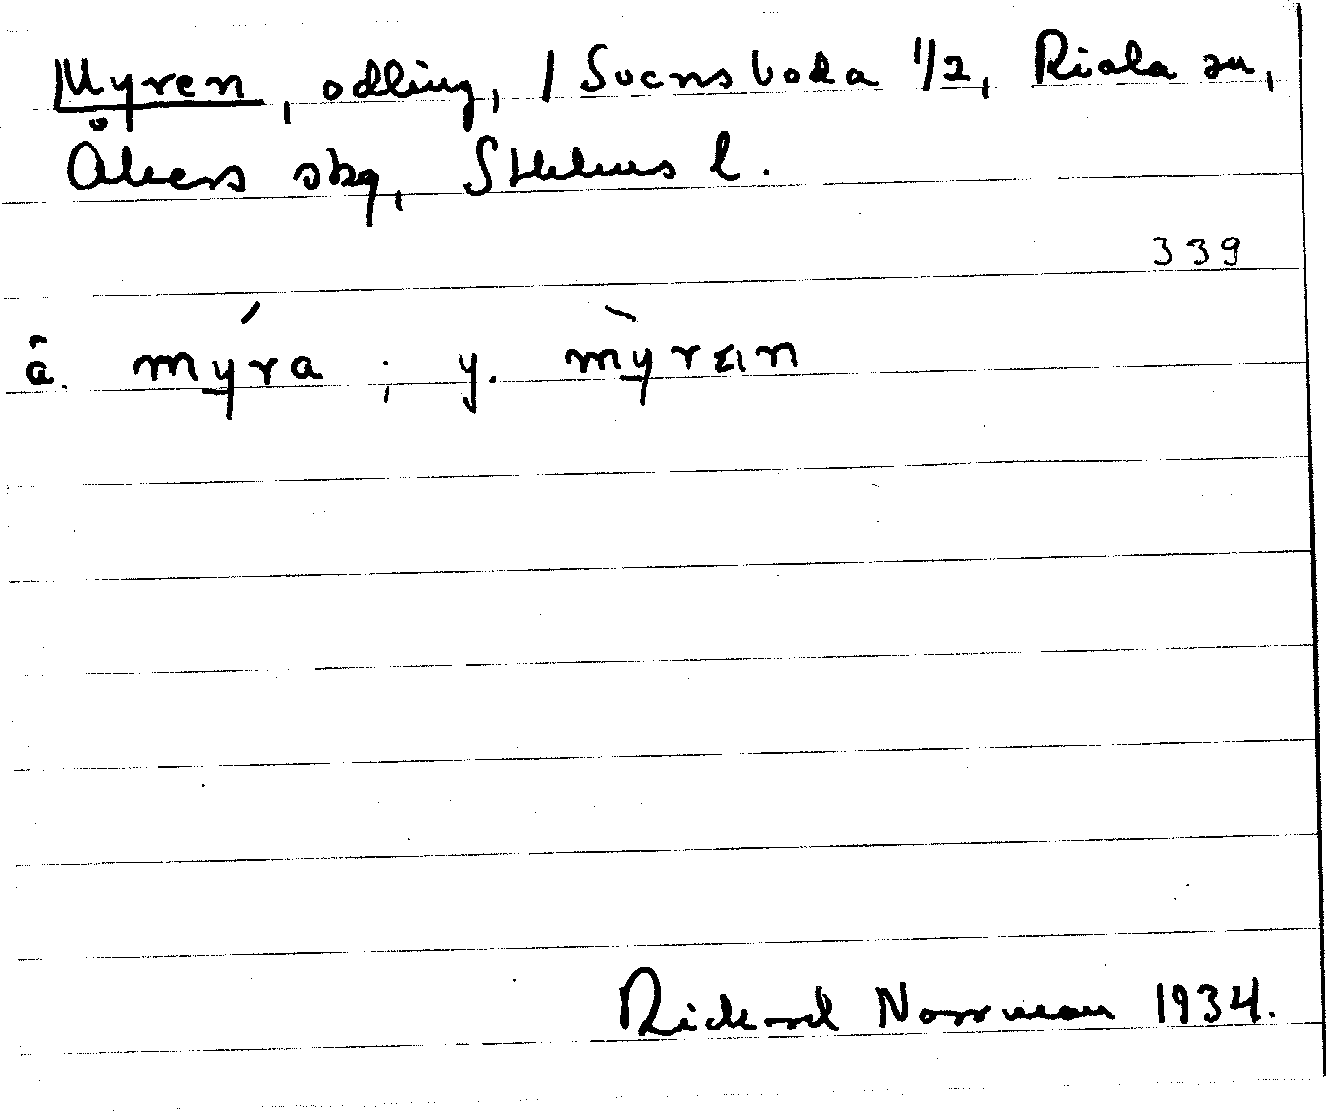 Myren, odling, / Svensboda 1/2, Riala sn,
Åkers skg, Sthlms l.
339
ä. mýra ; y. mỳrεın
Rickard Norrman 1934.